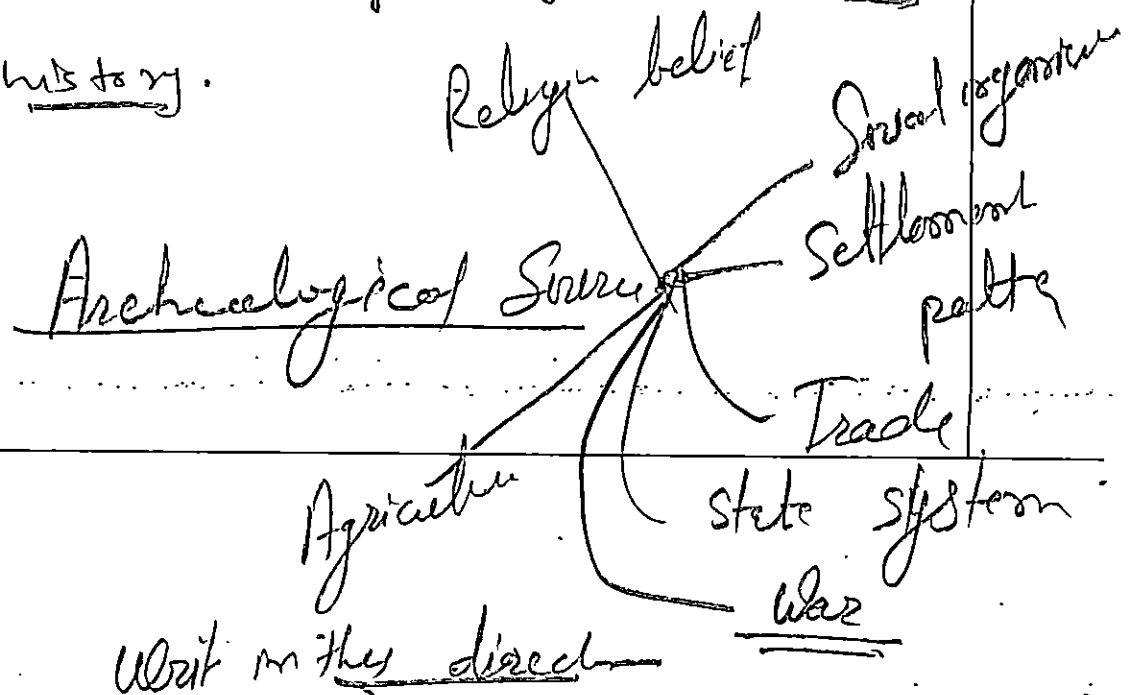 history.
Religion belief
Social organisa
Settlement
patte
Archaeological Source
Trade
Agriculture
state system
War
Writ in this direc